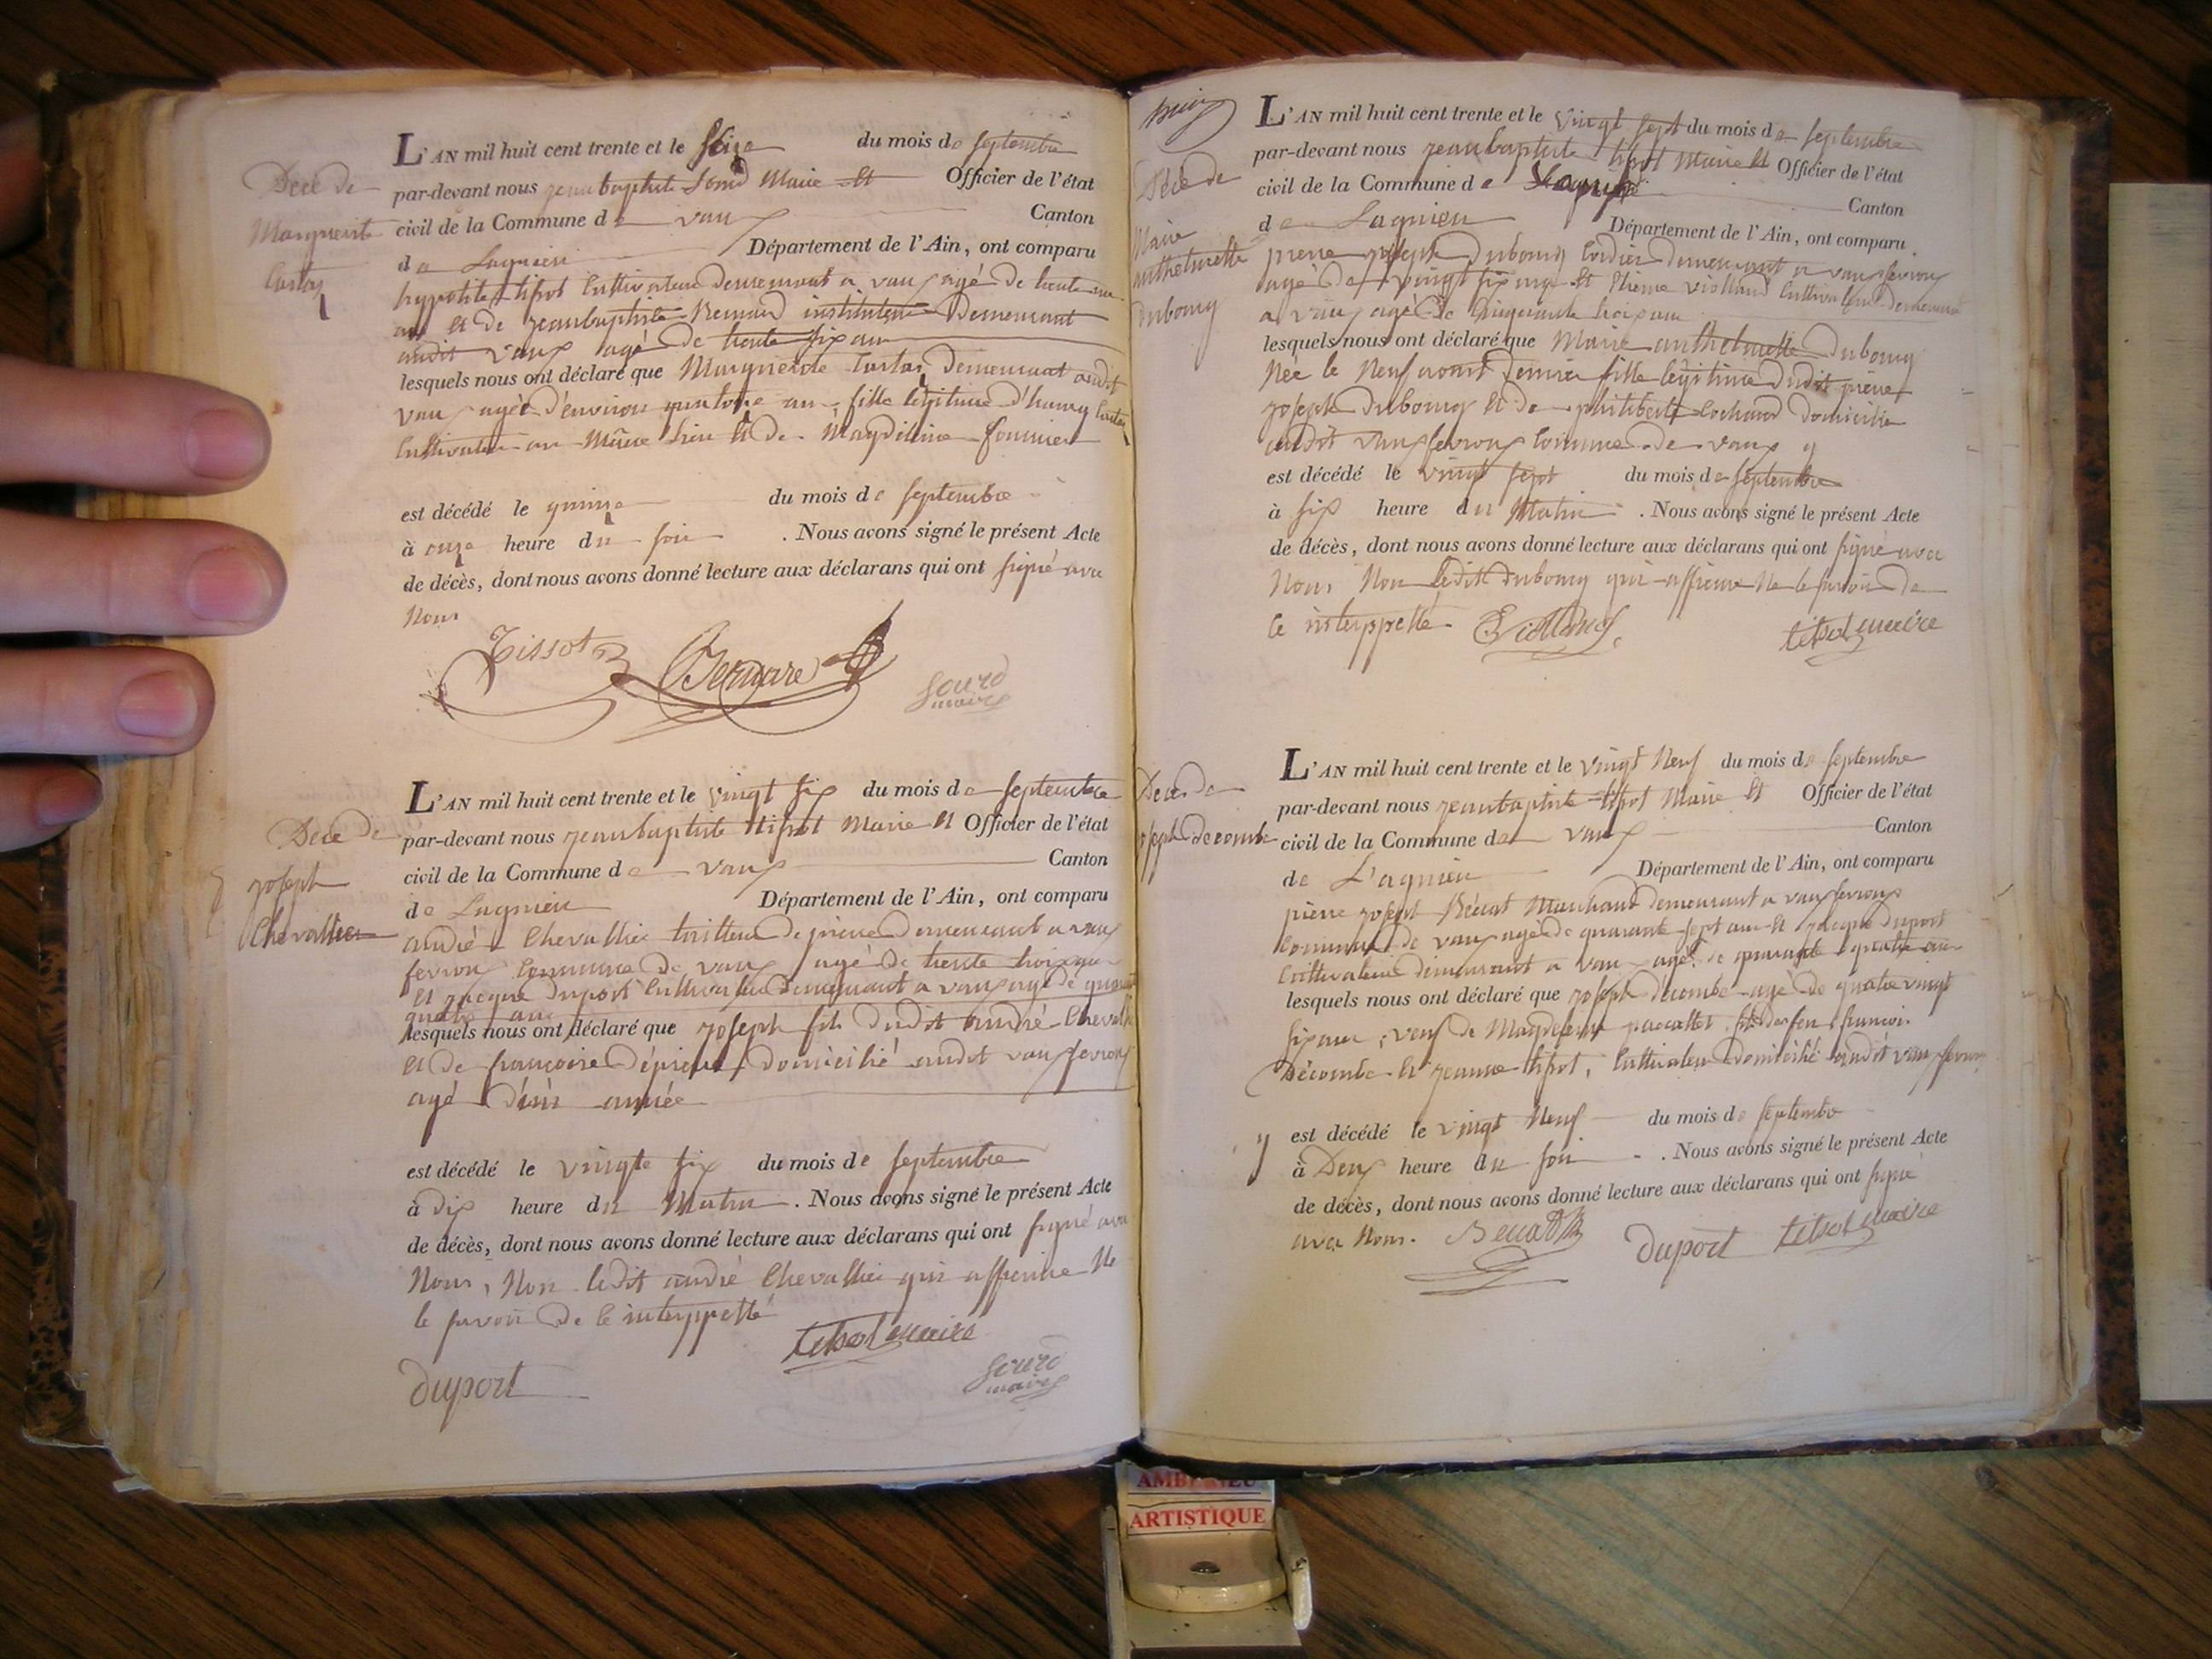 L'AN mil huit cent trente et le Seize du mois de septembre
par-devant nous jean baptiste Sourd Maire et Officier de l'état
civil de la Commune de vaux Canton
de Lagnieu Département de l'Ain, ont comparu
hyppolite tissot Cultivateur demeurant a vaux agé de trente
ans et de jean baptiste Bernard instituteur Demeurant
audit vaux agé de trente six ans
lesquels nous ont déclaré que Marguerite Demeurant audit
vaux agée d'environ quatorze ans, fille légitime d'
Cultivateur au Même lieu et de Magdeleine fournier
est décédé le quinze du mois de septembre
à onze heure du soir . Nous avons signé le présent Acte
de décès, dont nous avons donné lecture aux déclarans qui ont signé avec
Nous
Tissot Bernard Sourd
maire
Décé de
Marguerite
L'AN mil huit cent trente et le vingt six du mois de septembre
par-devant nous jean baptiste tissot Maire et Officier de l'état
civil de la Commune de vaux Canton
de Lagnieu Département de l'Ain, ont comparu
andré Chevallier tailleur de pierre demeurant a vaux
fevroux Commune de vaux agé de trente trois ans
et jacque duport Cultivateur demeurant a vaux agé de quarante
quatre ans
lesquels nous ont déclaré que joseph fils dudit andré Chevallier
et de françoise domicilié audit vaux fevroux
agé année
est décédé le vingte six du mois de septembre
à dix heure du Matin . Nous avons signé le présent Acte
de décès, dont nous avons donné lecture aux déclarans qui ont signé avec
Nous, Non ledit andré Chevallier qui affirme Ne
le savoir de ce interppellé
tissot maire
duport Sourd
maire
Décé de
joseph
Chevallier
L'AN mil huit cent trente et le vingt sept du mois de septembre
par-devant nous jean baptiste tissot Maire et Officier de l'état
civil de la Commune de Canton
de Lagnieu Département de l'Ain, ont comparu
pierre joseph dubourg Cordier demeurant a vaux fevroux
agé de vingt six ans et Etienne violland Cultivateur demeurant
a vaux agé de Cinquante trois ans
lesquels nous ont déclaré que Marie anthelmette dubourg
Née le Neuf avout dernier fille légitime dudit pierre
joseph dubourg et de philiberte Cochard domicilié
audit vaux fevroux Commune de vaux y
est décédé le vingt sept du mois de septembre
à six heure du Matin . Nous avons signé le présent Acte
de décès, dont nous avons donné lecture aux déclarans qui ont signé avec
Nous Non ledit dubourg qui affirme Ne le savoir de
ce interppellé Violland tissot maire
Décé de
Marie
anthelmette
dubourg
L'AN mil huit cent trente et le vingt Neuf du mois de septembre
par-devant nous jean baptiste tissot Maire et Officier de l'état
civil de la Commune de vaux Canton
de L'agnieu Département de l'Ain, ont comparu
pierre joseph Récat Marchand demeurant a vaux fevroux
Commune de vaux agé de quarante sept ans et jacque duport
Cultivateur demeurant a vaux agé de quarante quatre ans
lesquels nous ont déclaré que joseph decombe agé de quatre vingt
six ans, veuf de Magdeleine fils de feu françois
Décombe et jeanne tissot, Cultivateur domicilié audit vaux fevroux
y est décédé le vingt Neuf du mois de septembre
à Deux heure du soir . Nous avons signé le présent Acte
de décès, dont nous avons donné lecture aux déclarans qui ont signé
avec Nous. duport tissot maire
Décé de
joseph decombe
AMBRONEU
ARTISTIQUE